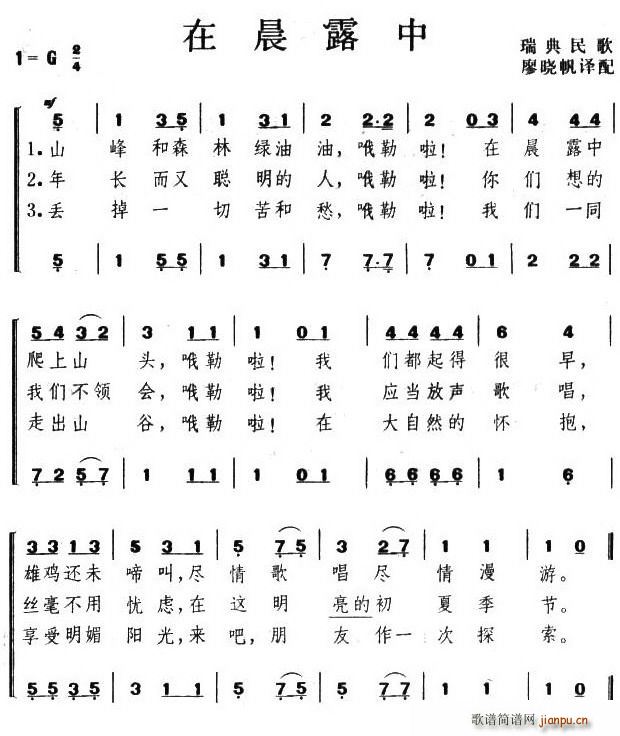 在晨露中
1=G 2/4
瑞典民歌
廖晓帆译配
mf
5 | 1 35 | 1 31 | 2 2·2 | 2 03 | 4 44
1.山 峰和森林绿油油，哦勒啦！在晨露中
2.年 长而又聪明的人，哦勒啦！你们想的
3.丢 掉一切苦和愁，哦勒啦！我们一同
5 | 1 55 | 1 31 | 7 7·7 | 7 01 | 2 22
54 32 | 3 11 | 1 01 | 44 44 | 6 4
爬上山头，哦勒啦！我们都起得很早，
我们不领会，哦勒啦！我应当放声歌唱，
走出山谷，哦勒啦！在大自然的怀抱，
72 57 | 1 11 | 1 01 | 66 66 | 1 6
33 13 | 5 31 | 5 75 | 3 27 | 1 1 | 1 0
雄鸡还未啼叫，尽情歌唱尽情漫游。
丝毫不用忧虑，在这明亮的初夏季节。
享受明媚阳光，来吧，朋友作一次探索。
55 35 | 3 11 | 5 75 | 5 77 | 1 1 | 1 0
歌谱简谱网
jianpu.cn